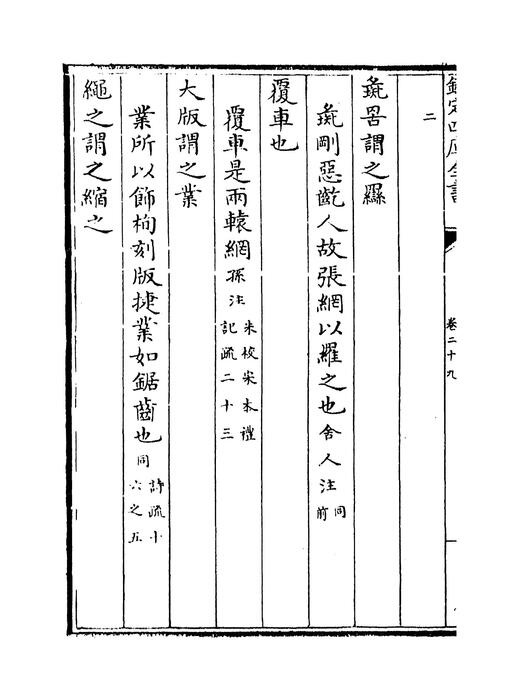 欽定四庫全書
卷二十九
二
彘罟謂之羉
彘剛惡齕人故張網以羅之也舍人注同前
覆車也
覆車是兩轅網孫注朱校宋本禮記疏二十三
大版謂之業
業所以飾栒刻版捷業如鋸齒也同詩疏十六之五
繩之謂之縮之